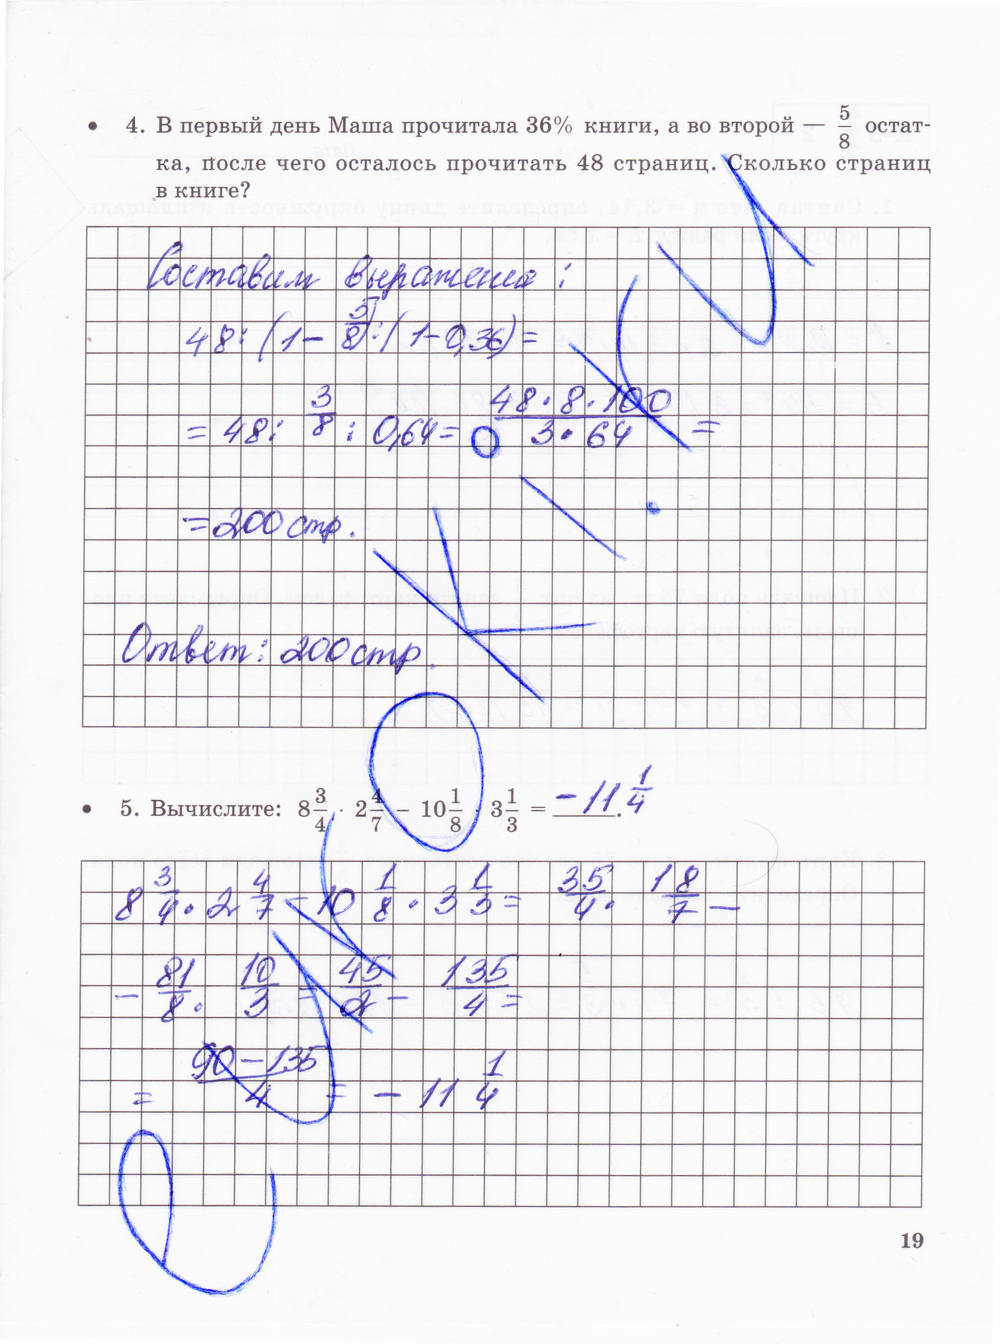 • 4. В первый день Маша прочитала 36% книги, а во второй — 5/8 остат-
ка, после чего осталось прочитать 48 страниц. Сколько страниц
в книге?
Составим выражения:
48 : (1 - 5/8) : (1 - 0,36) =
= 48 : 3/8 : 0,64 = 48 · 8 · 100 / 3 · 64 =
= 200 стр.
Ответ: 200 стр.
• 5. Вычислите: 8 3/4 · 2 4/7 − 10 1/8 · 3 1/3 = -11 1/4.
8 3/4 · 2 4/7 - 10 1/8 · 3 1/3 = 35/4 · 18/7 -
- 81/8 · 10/3 = 45/2 - 135/4 =
= 90 - 135 / 4 = - 11 1/4
19